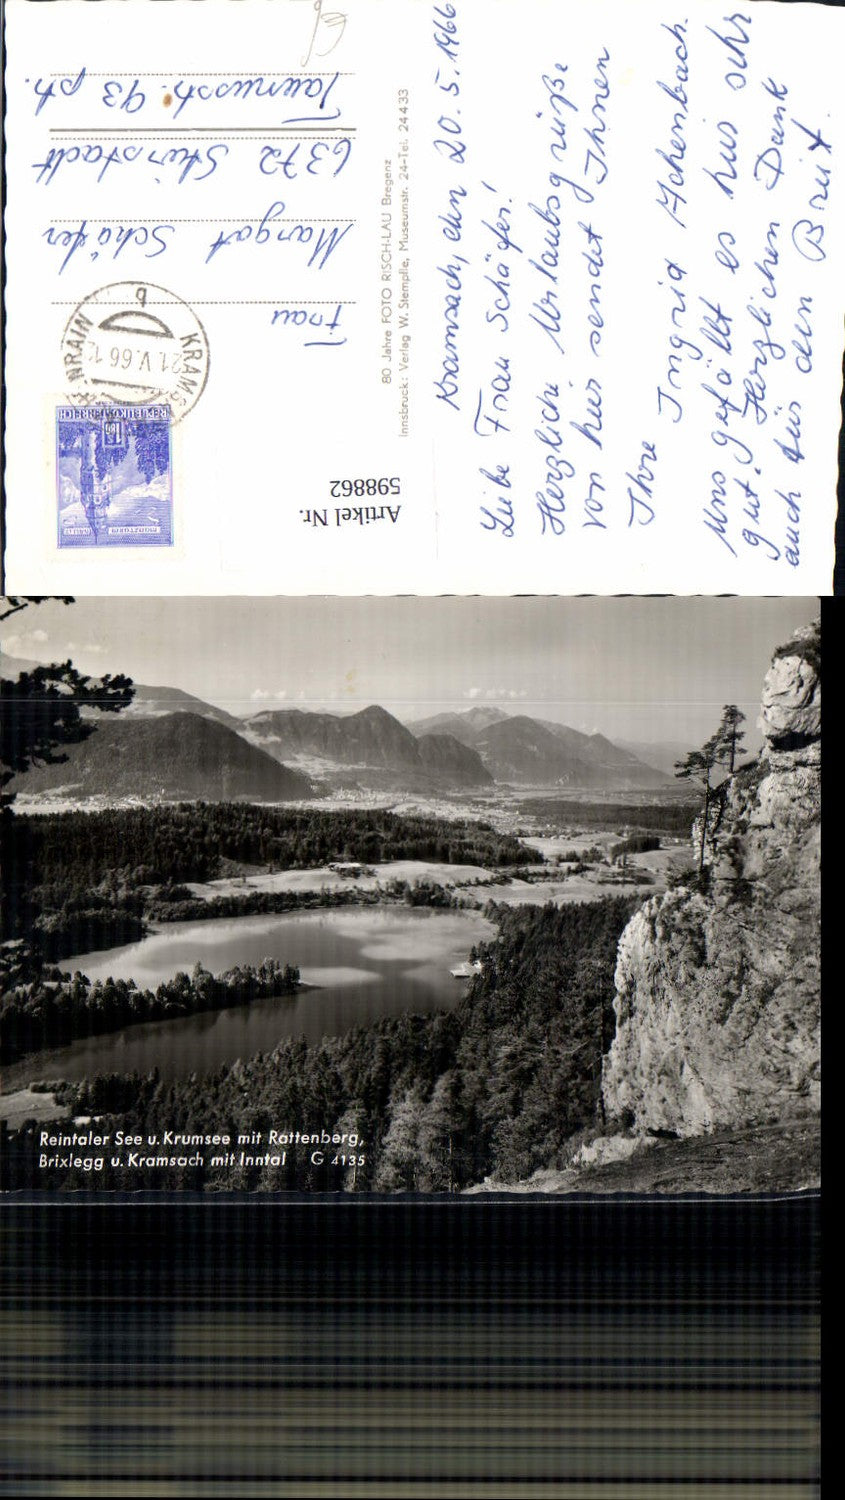 Kramsach, den 20. 5. 1966
Liebe Frau Schäfer!
Herzliche Urlaubsgrüße
von hier sendet Ihnen
Ihre Ingrid Achenbach.
Uns gefällt es hier sehr
gut. Herzlichen Dank
auch für den Brief.
80 Jahre FOTO RISCH-LAU Bregenz
Innsbruck: Verlag W. Stempfle, Museumstr. 24-Tel. 24433
Artikel Nr.
598862
REPUBLIK ÖSTERREICH
KRAMS
21.V.66
b
Frau
Margot Schäfer
6372 Stierstadt
Taunusstr. 93 ptr.
Reintaler See u. Krumsee mit Rattenberg,
Brixlegg u. Kramsach mit Inntal G 4135